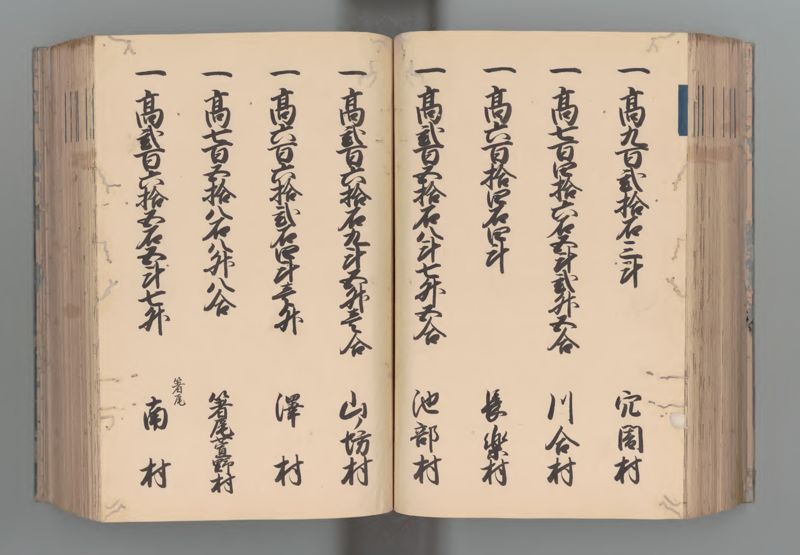 一 高九百弐拾石三斗 穴闇村
一 高七百四拾六石五斗弐升五合 川合村
一 高六百拾四石四斗 長楽村
一 高弐百五拾石八斗七升五合 池部村
一 高弐百六拾石九斗五升壱合 山ノ坊村
一 高六百六拾弐石四斗壱升 澤村
一 高七百五拾八石八升八合 箸尾萱野村
一 高弐百六拾五石五斗七升 箸尾 南村